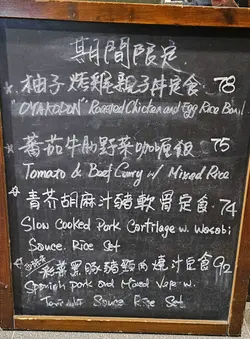 期間限定
柚子烤雞親子丼定食 78
"OYAKODON" Roasted Chicken and Egg Rice Bowl
蕃茄牛肋野菜咖喱飯 75
Tomato & Beef Curry w/ Mixed Rice
青芥胡麻汁豬軟骨定食 74
Slow Cooked Pork Cartilage w. Wasabi
Sauce. Rice Set
黑豚豬頸肉燒汁定食 92
Spanish pork and Mixed Vege w.
Sauce Rice Set